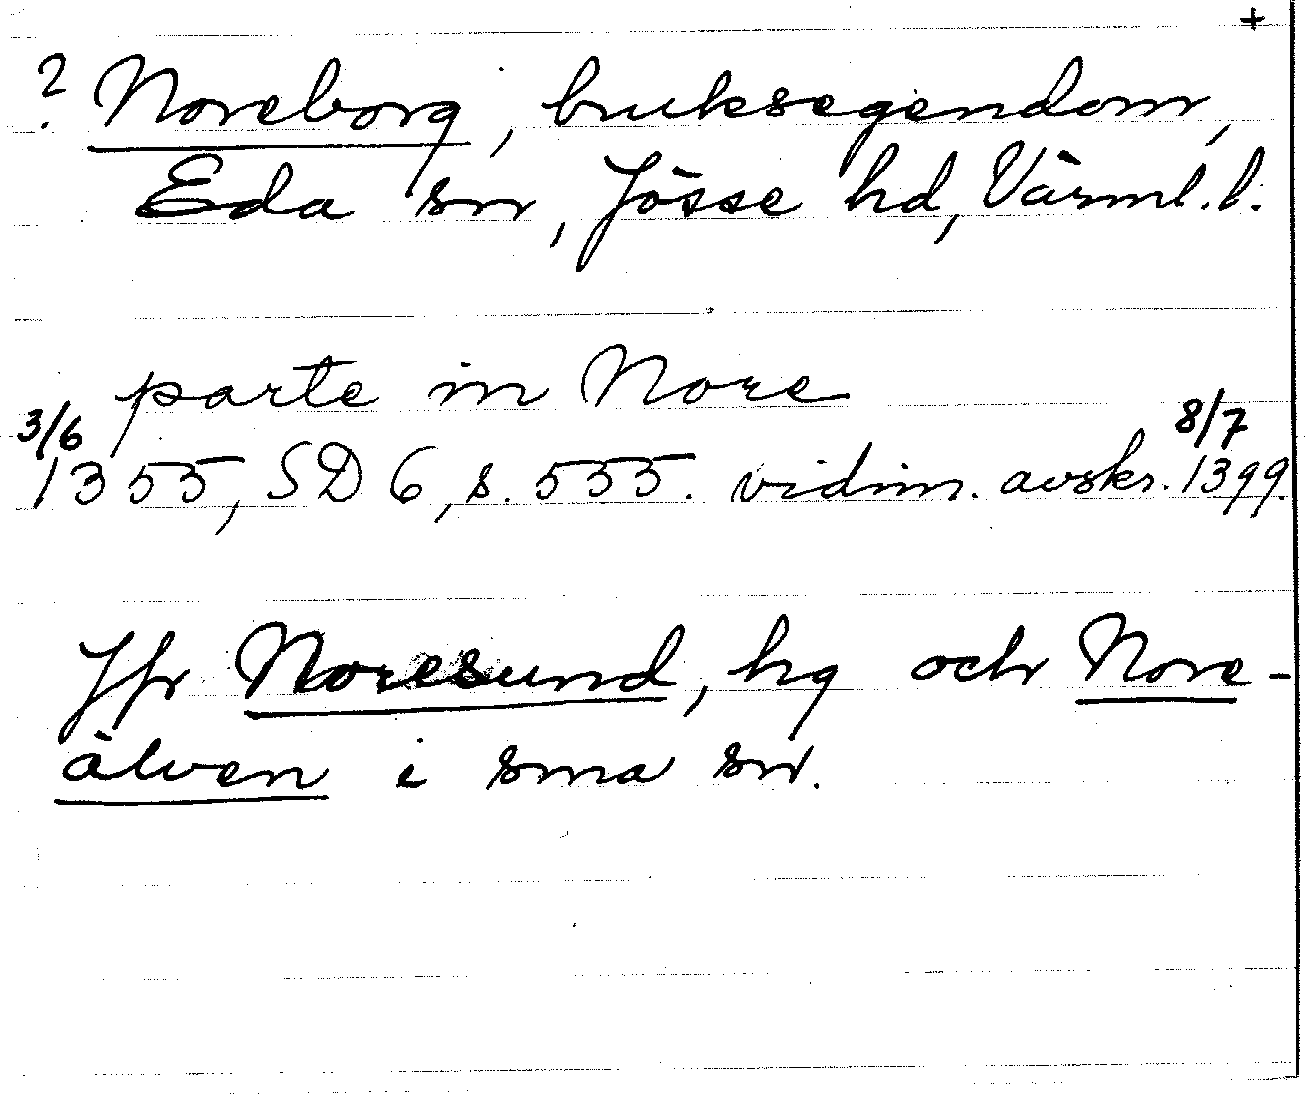 +
? Noreborg, bruksegendom,
Eda sn, Jösse hd, Värml. l.
parte in Nore
3/6 8/7
1355, SD 6, s. 555. vidim. avskr. 1399.
Jfr Noresund, hg och Nore-
älven i sma sn.